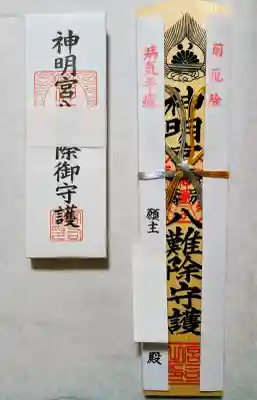 神明宮
除御守護
前厄除
病気平癒
神明
八難除守護
願主
殿